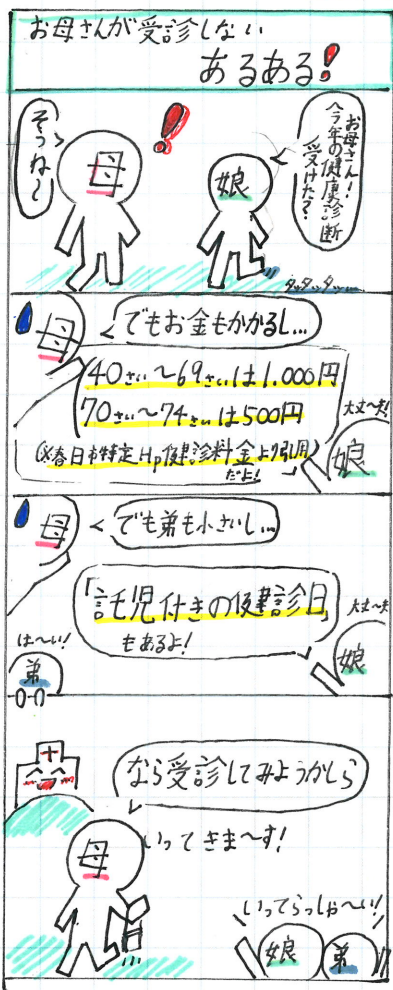 お母さんが受診しない
あるある!
お母さん!
今年の健康診断
受けた?
娘
母
そうね〜
タッタッタッ…
母
でもお金もかかるし…
40さい〜69さいは1.000円
70さい〜74さいは500円
(※春日市特定Hp健診料金より引用)
だよ!
大丈〜夫!
娘
母
でも弟も小さいし…
「託児付きの健診日」
もあるよ!
大丈〜夫
娘
は〜い!
弟
なら受診してみようかしら
いってきま〜す!
母
いってらっしゃ〜い!
娘
弟